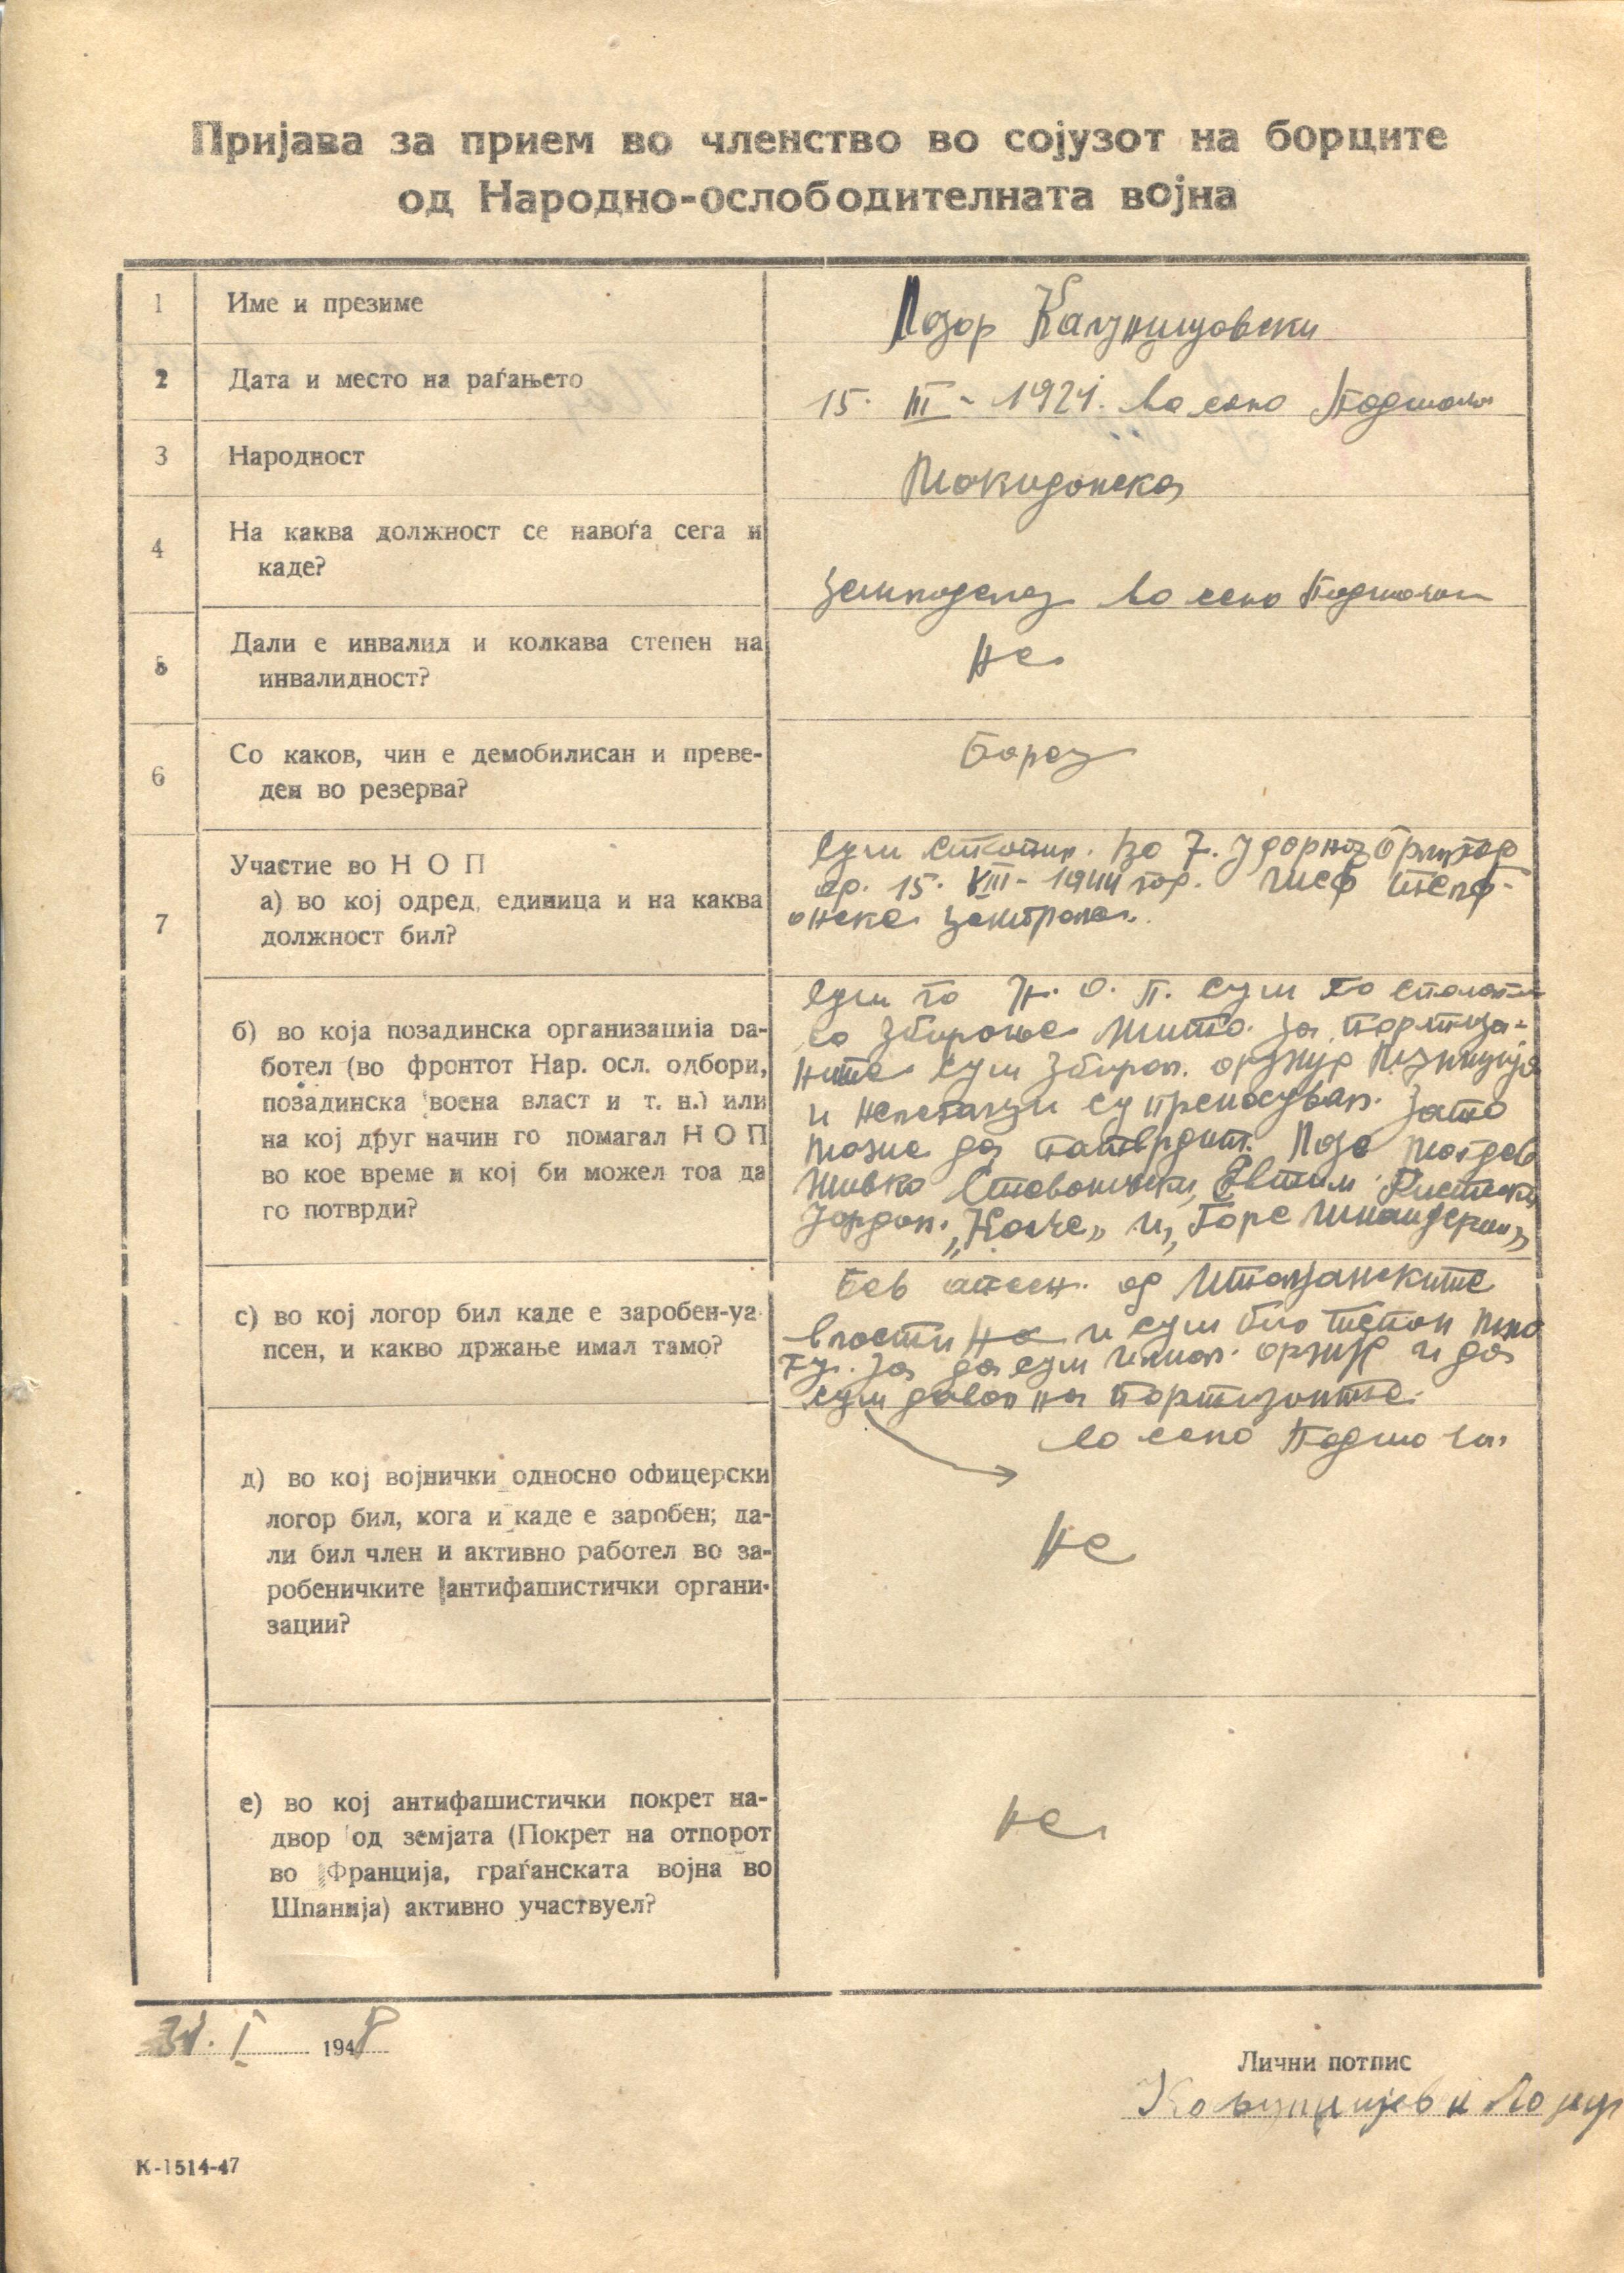 Пријава за прием во членство во сојузот на борците
од Народно-ослободителната војна
1
Име и презиме
Лазор
2
Дата и место на раѓањето
15. III - 1921. во село
3
Народност
Макидонска
4
На каква должност се навоѓа сега и
каде?
во село
5
Дали е инвалид и колкава степен на
инвалидност?
Не
6
Со каков, чин е демобилисан и преве-
ден во резерва?
Борац
7
Участие во Н О П
а) во кој одред, единица и на каква
должност бил?
7. Ударна
15. VIII - 1944 год. Шеф
централа.
б) во која позадинска организација ра-
ботел (во фронтот Нар. осл. одбори,
позадинска воена власт и т. н.) или
на кој друг начин го помагал Н О П
во кое време и кој би можел тоа да
го потврди?
Сум го Н. О. П. сум го
со збирање жито за партиза-
ните сум збирал
и сум зато
може да потврдит
Живко Евтим
Јордан „Колче„ и,
с) во кој логор бил каде е заробен-уа
псен, и какво држање имал тамо?
Бев апсен од Италјанските
власти на и сум био тепан
за да сум имал и да
сум давал на партизанте.
во село
д) во кој војнички односно офицерски
логор бил, кога и каде е заробен; да-
ли бил член и активно работел во за-
робеничките антифашистички органи-
зации?
Не
е) во кој антифашистички покрет на-
двор од земјата (Покрет на отпорот
во Франција, граѓанската војна во
Шпанија) активно участвуел?
Не
31. I 1948
Лични потпис
К-1514-47